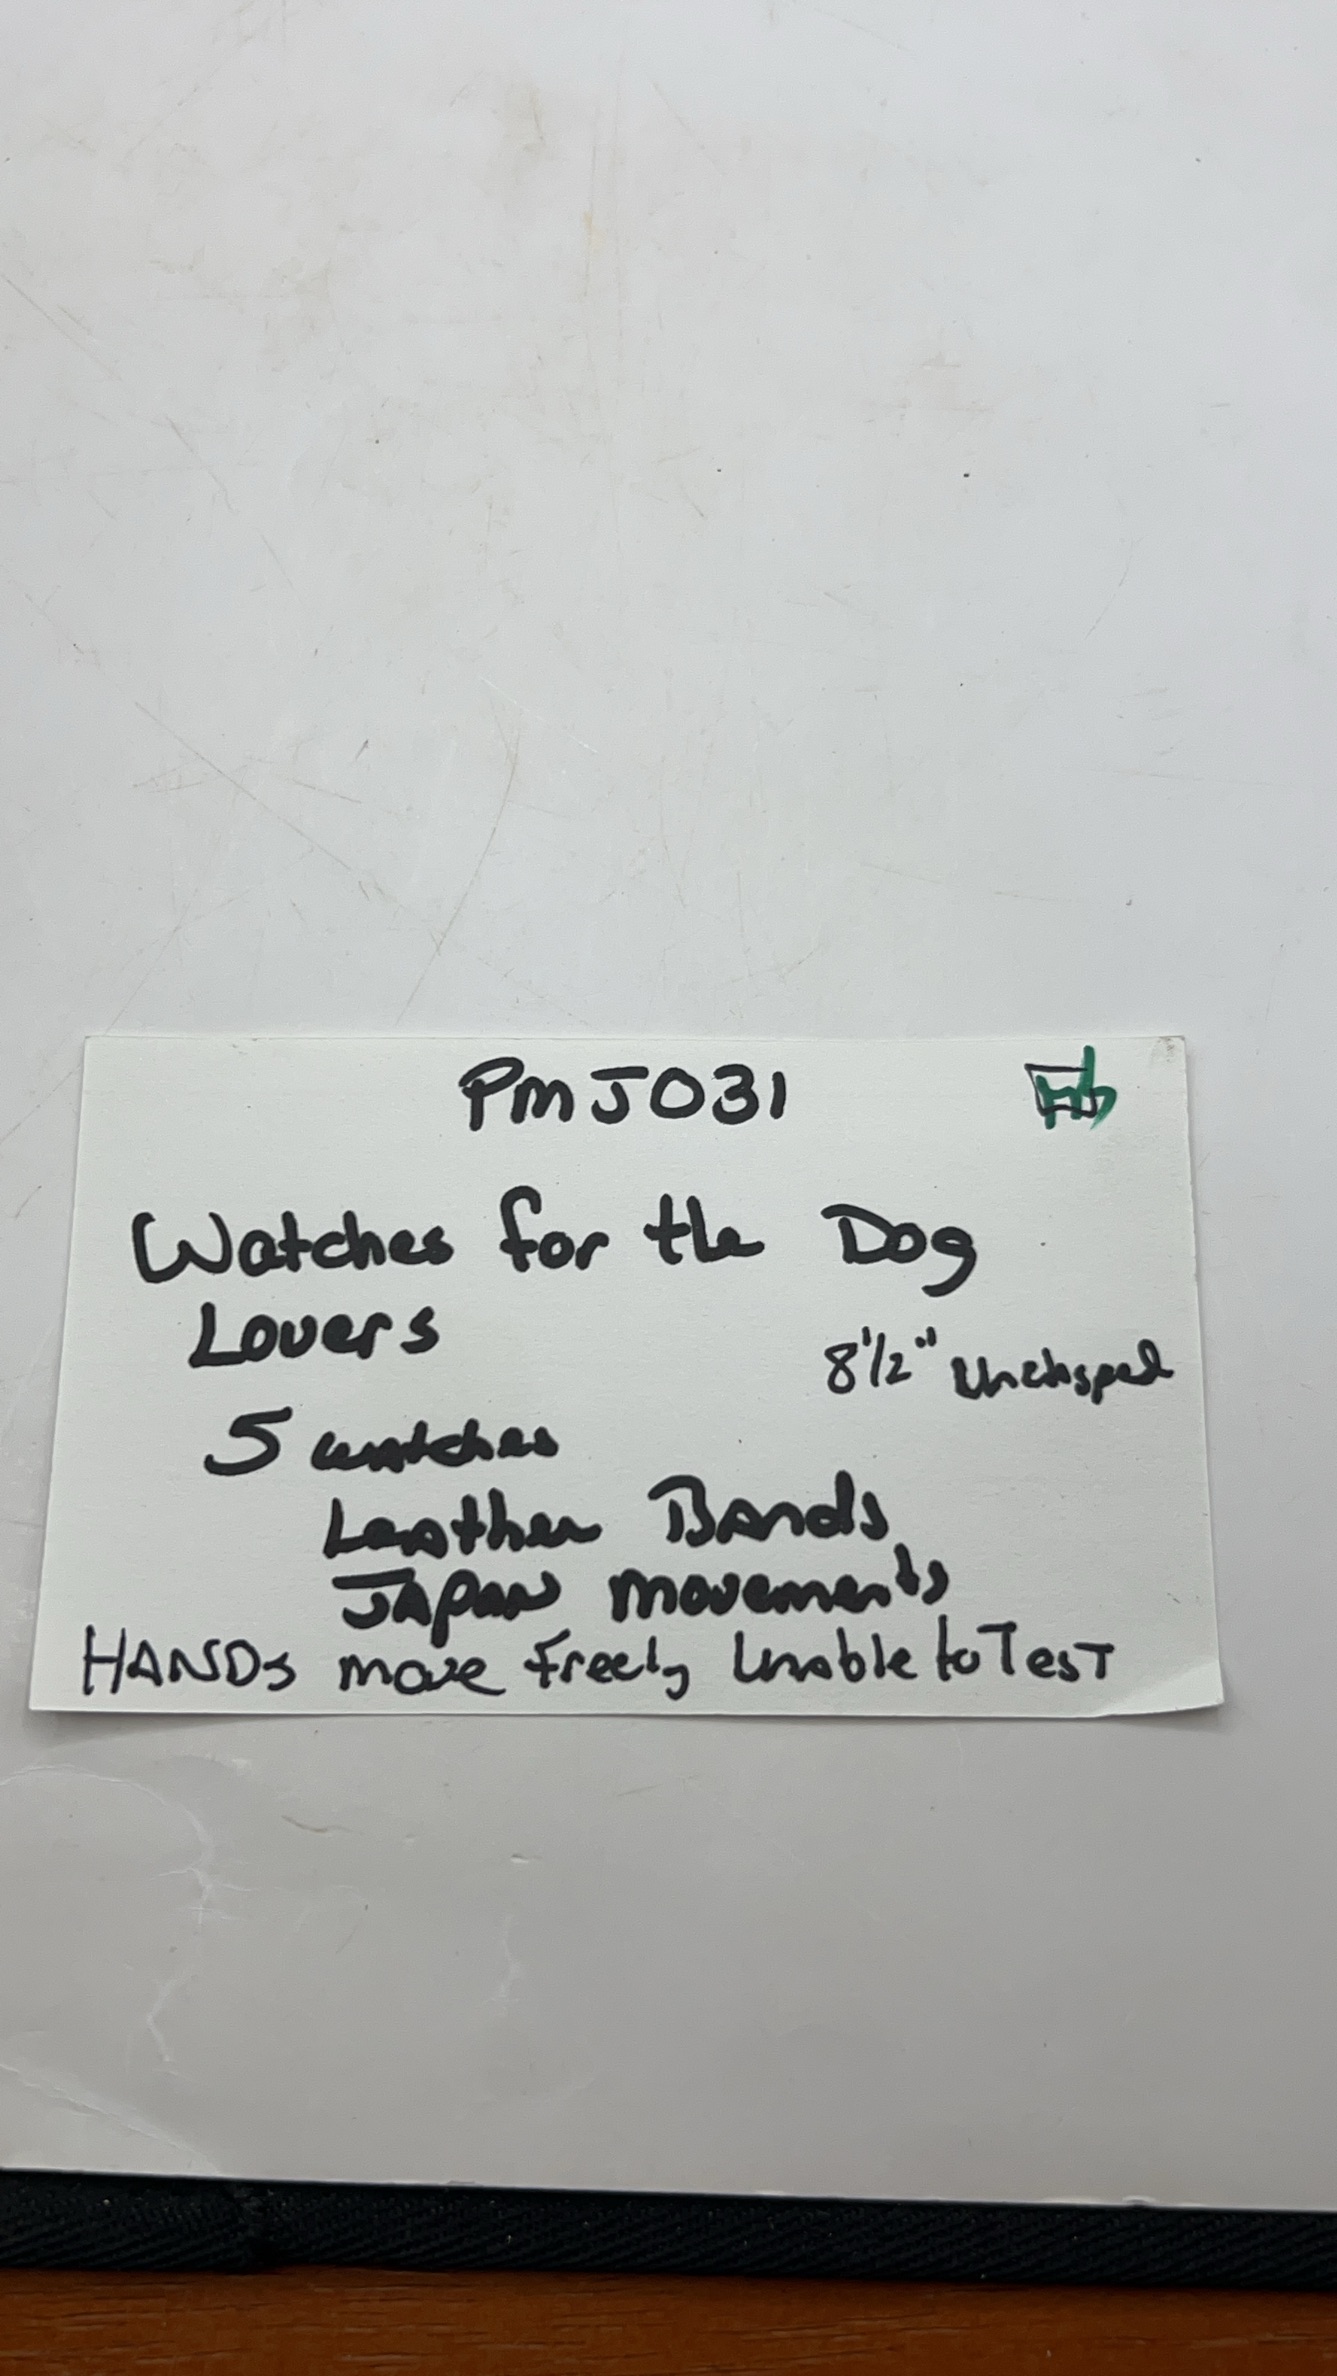 PMJ031
Watches for the Dog
Lovers
8 1/2" Unclasped
5 watches
Leather Bands
Japan movements
HANDs move freely Unable to Test